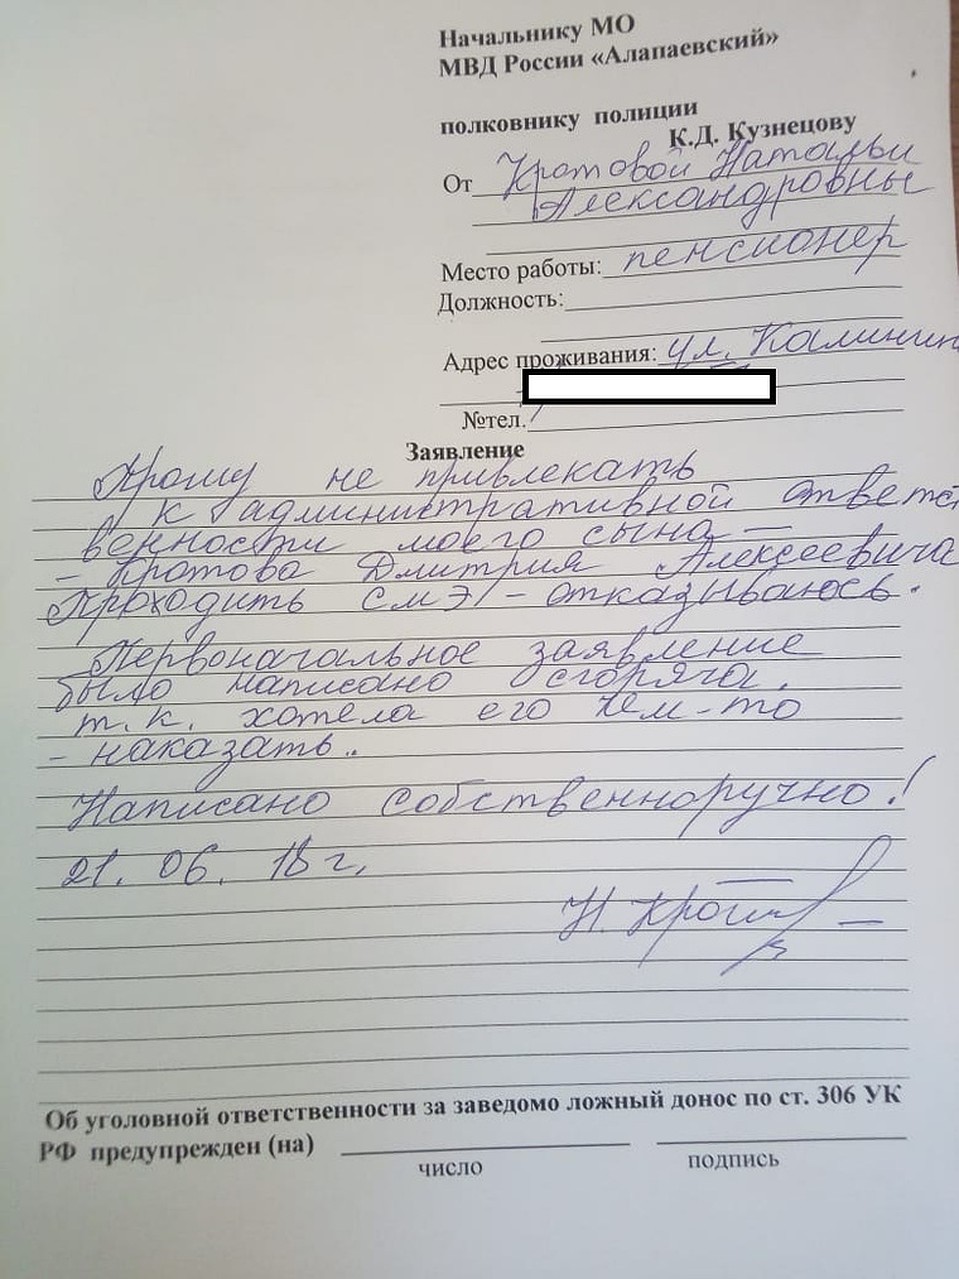 Начальнику МО
МВД России «Алапаевский»
полковнику полиции
К.Д. Кузнецову
От Кротовой Натальи
Александровны
Место работы: пенсионер
Должность:
Адрес проживания: ул. Калинин
№тел.
Заявление
Прошу не привлекать
к административной ответст
венности моего сына —
– Кротова Дмитрия Алексеевича
Проходить СМЭ – отказываюсь.
Первоначальное заявление
было написано сгоряча,
т.к. хотела его чем-то
– наказать.
Написано собственноручно!
21. 06. 18 г.
Н. Кротов
Об уголовной ответственности за заведомо ложный донос по ст. 306 УК
РФ предупрежден (на)
число подпись